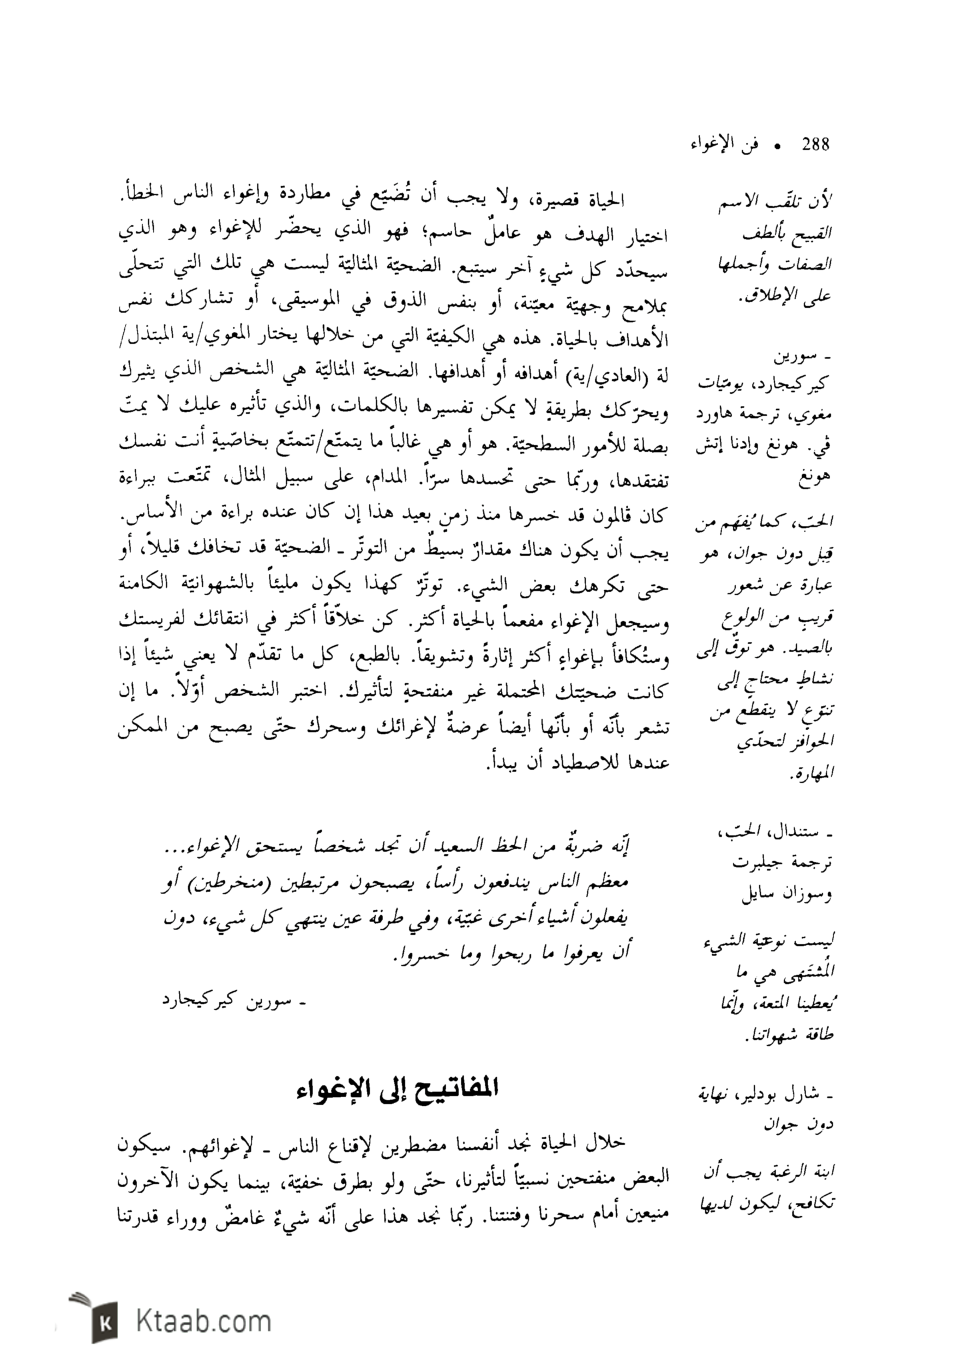 288 • فن الإغواء
لأن تلقَّب الاسم
القبيح بألطف
الصفات وأجملها
على الإطلاق.
ـ سورين
كيركيجارد، يوميّات
مغوي، ترجمة هاورد
ڤي. هونغ وإدنا إتش
هونغ
الحبّ، كما يُفهَم من
قِبل دون جوان، هو
عبارة عن شعور
قريبٍ من الولوع
بالصيد. هو توقٌ إلى
نشاطٍ محتاج إلى
تنوّعٍ لا ينقطع من
الحوافز لتحدّي
المهارة.
ـ ستندال، الحبّ،
ترجمة جيلبرت
وسوزان سايل
ليست نوعيّة الشيء
المُشتَهى هي ما
يُعطينا المتعة، وإنّما
طاقة شهواتنا.
ـ شارل بودلير، نهاية
دون جوان
ابنة الرغبة يجب أن
تكافح، ليكون لديها
الحياة قصيرة، ولا يجب أن تُضَيّع في مطاردة وإغواء الناس الخطأ.
اختيار الهدف هو عاملٌ حاسم؛ فهو الذي يحضّر للإغواء وهو الذي
سيحدّد كل شيءٍ آخر سيتبع. الضحيّة المثاليّة ليست هي تلك التي تتحلّى
بملامح وجهيّة معيّنة، أو بنفس الذوق في الموسيقى، أو تشاركك نفس
الأهداف بالحياة. هذه هي الكيفيّة التي من خلالها يختار المغوي/ية المبتذل/
لة (العادي/ية) أهدافه أو أهدافها. الضحيّة المثاليّة هي الشخص الذي يثيرك
ويحرّكك بطريقةٍ لا يمكن تفسيرها بالكلمات، والذي تأثيره عليك لا يمتّ
بصلة للأمور السطحيّة. هو أو هي غالباً ما يتمتع/تتمتّع بخاصّيةٍ أنت نفسك
تفتقدها، وربّما حتى تحسدها سرّاً. المدام، على سبيل المثال، تمتّعت ببراءة
كان ڤالمون قد خسرها منذ زمنٍ بعيد هذا إن كان عنده براءة من الأساس.
يجب أن يكون هناك مقدارٌ بسيطٌ من التوتّر ـ الضحيّة قد تخافك قليلاً، أو
حتى تكرهك بعض الشيء. توتّرٌ كهذا يكون مليئاً بالشهوانيّة الكامنة
وسيجعل الإغواء مفعماً بالحياة أكثر. كن خلاّقاً أكثر في انتقائك لفريستك
وستُكافأ بإغواءٍ أكثر إثارةً وتشويقاً. بالطبع، كل ما تقدّم لا يعني شيئاً إذا
كانت ضحيّتك المحتملة غير منفتحةٍ لتأثيرك. اختبر الشخص أوّلاً. ما إن
تشعر بأنّه أو بأنّها أيضاً عرضةٌ لإغرائك وسحرك حتّى يصبح من الممكن
عندها للاصطياد أن يبدأ.
إنّه ضربةٌ من الحظ السعيد أن تجد شخصاً يستحق الإغواء...
معظم الناس يندفعون رأساً، يصبحون مرتبطين (منخرطين) أو
يفعلون أشياء أخرى غبّية، وفي طرفة عين ينتهي كل شيء، دون
أن يعرفوا ما ربحوا وما خسروا.
ـ سورين كيركيجارد
المفاتيح إلى الإغواء
خلال الحياة نجد أنفسنا مضطرين لإقناع الناس ـ لإغوائهم. سيكون
البعض منفتحين نسبيّاً لتأثيرنا، حتّى ولو بطرق خفيّة، بينما يكون الآخرون
منيعين أمام سحرنا وفتنتنا. ربّما نجد هذا على أنّه شيءٌ غامضٌ ووراء قدرتنا
Ktaab.com